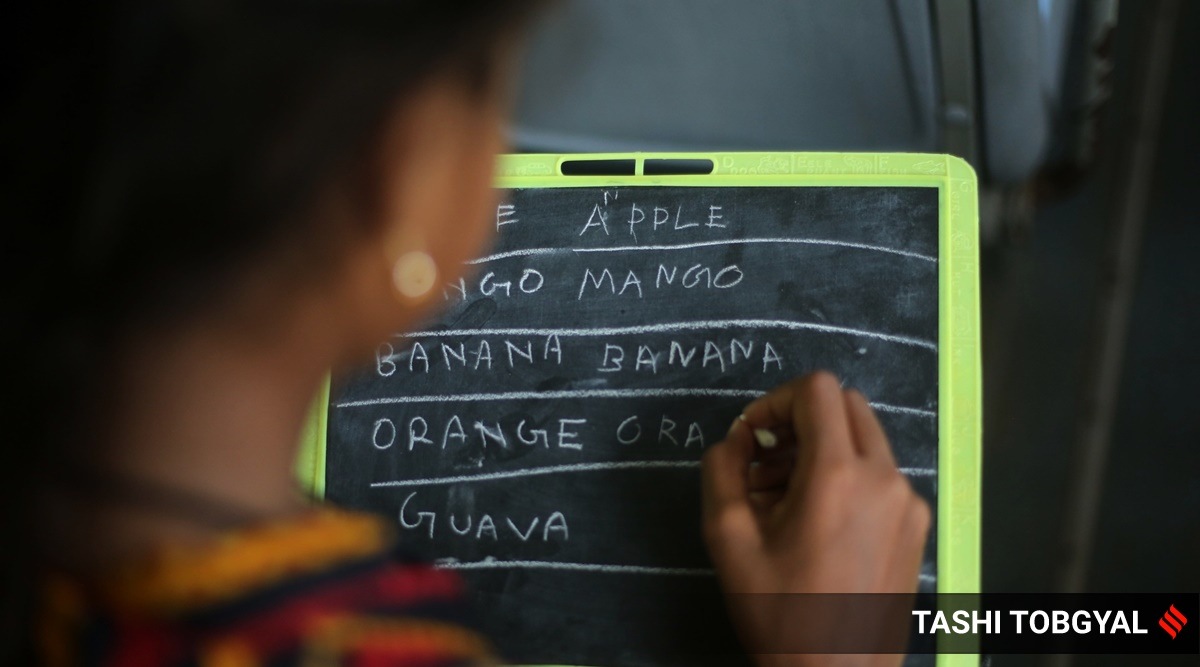 APPLE
MANGO
BANANA BANANA
ORANGE ORA
GUAVA
TASHI TOBGYAL